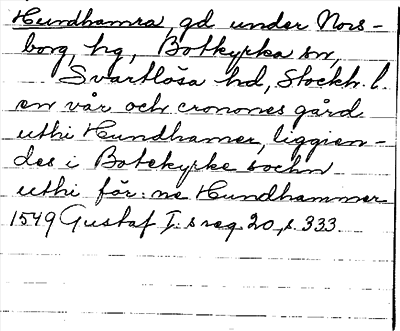 Hundhamra, gd under Nors-
borg, hg, Botkyrka sn,
Svartlösa hd, Stockh. l.
en vår och cronones gård
uthi Hundhamer, liggien-
des i Botekyrke sochn
uthi för:ne Hundhammer
1549 Gustaf I:s reg 20, s. 333.